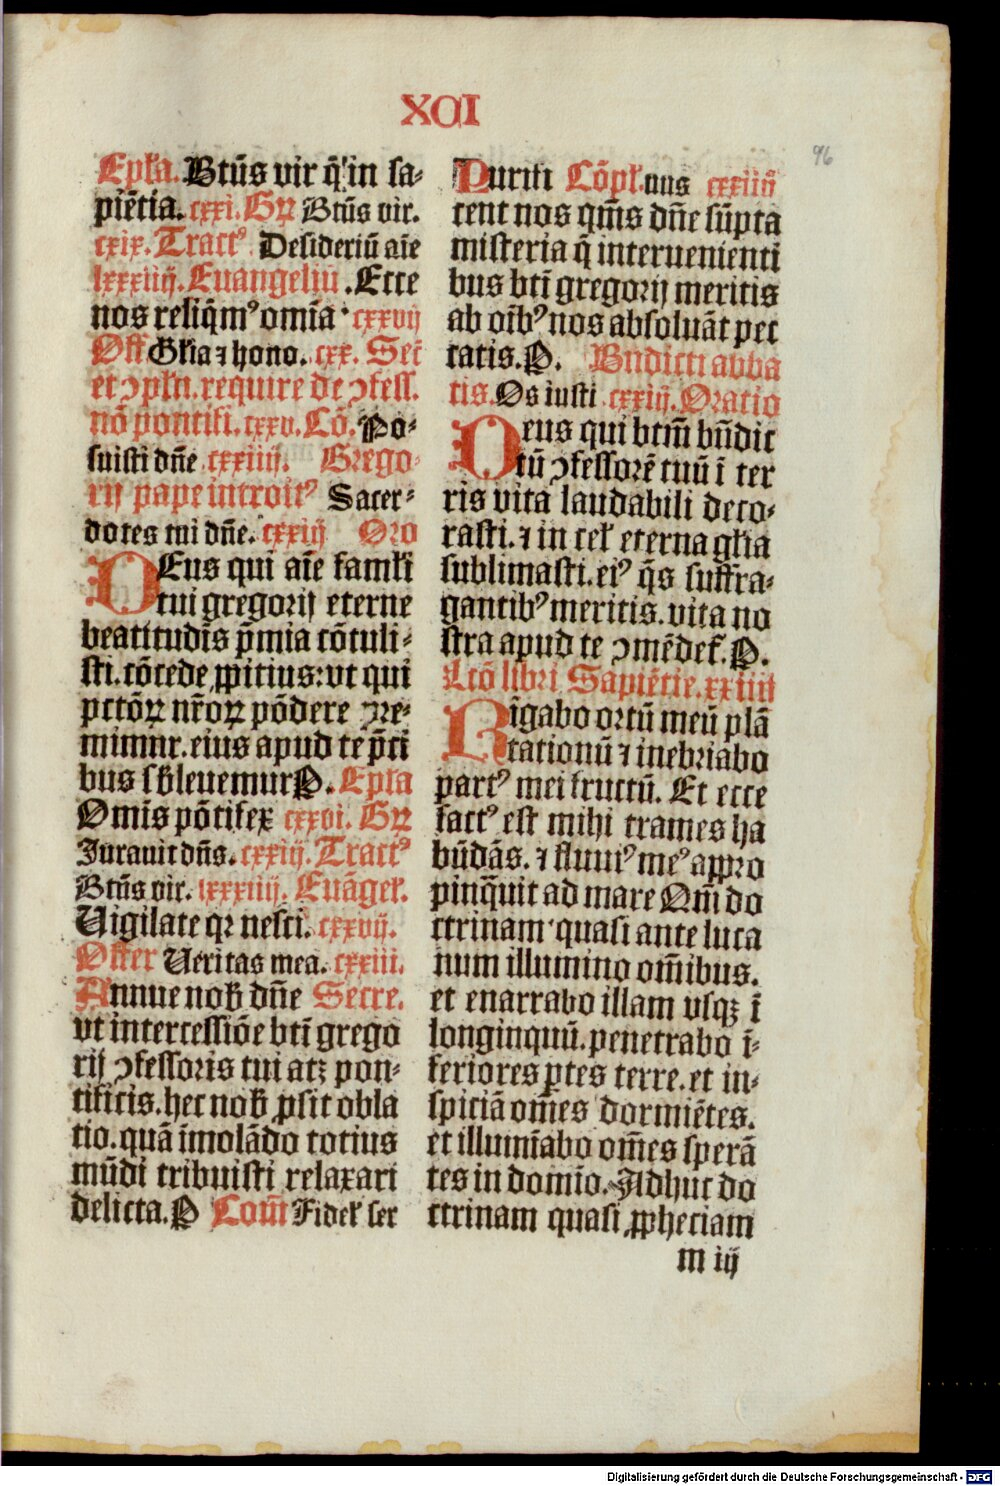 XCI
96
Ep̄la. Btūs vir q̄ in sa-
piētia. cxxi. Gꝝ Btūs vir.
cxix. Tractꝰ Desideriū aīe
lxxxiiij. Euangeliū. Ecce
nos reliq̄mꝰ omīa · cxxvij
Off Głia ⁊ hono. cxx. Secr̄
et ꝯpłn. require de ꝯfess.
nō pontifi. cxxv. Cō. Po-
suisti dn̄e cxxiiij. Grego-
rij pape introitꝰ Sacer-
dotes tui dn̄e. cxxiij Oro
DEus qui aīe famłi
tui gregorij eterne
beatitudīs p̄mia cōtuli-
sti. cōcede ꝓpitius: vt qui
pctōꝝ nr̄oꝝ pōdere ꝯpre-
mimur. eius apud te p̄ci
bus sb̄leuemur P. Epła
Omīs pōtifex cxxvi. Gꝝ
Jurauit dn̄s. cxxiij. Tractꝰ
Btūs vir. lxxxiiij. Euāgeł.
Uigilate qꝛ nesci. cxxvij.
Offer Ueritas mea. cxxiii.
Annue nob̄ dn̄e Secre.
vt intercessiōe btī grego
rij ꝯfessoris tui atqꝫ pon-
tificis. hec nob̄ ꝓsit obla
tio. quā īmolādo totius
mūdi tribuisti relaxari
delicta. P Com̄ Fideł ser
Purifi Cōpł. uus cxxiiij
cent nos qm̄s dn̄e sūpta
misteria q̄ interuenienti
bus btī gregorij meritis
ab oībꝰ nos absoluāt pec
catis. P. Bn̄dicti abba
tis. Os iusti cxxiij. Oratio
Deus qui btm̄ bn̄dic
tū ꝯfessorē tuū ī ter
ris vita laudabili deco-
rasti. ⁊ in celꝭ eterna głia
sublimasti. eiꝰ q̄s suffra-
gantibꝰ meritis. vita no
stra apud te ꝯmēdeꝉ. P.
Lcō libri Sapiētie. xxiiij
Rīgabo ortū meū plā
tationū ⁊ inebriabo
partꝰ mei fructū. Et ecce
factꝰ est mihi trames ha
būdās. ⁊ fluuiꝰ meꝰ appro
pinq̄uit ad mare Qm̄ do
ctrinam quasi ante luca
num illumino om̄ibus.
et enarrabo illam vsqꝫ ī
longinquū. penetrabo ī-
feriores ꝑtes terre. et in-
spiciā om̄es dormiētes.
et illumīabo om̄es sperā
tes in domīo. Adhuc do
ctrinam quasi ꝓpheciam
m iij
Digitalisierung gefördert durch die Deutsche Forschungsgemeinschaft - DFG